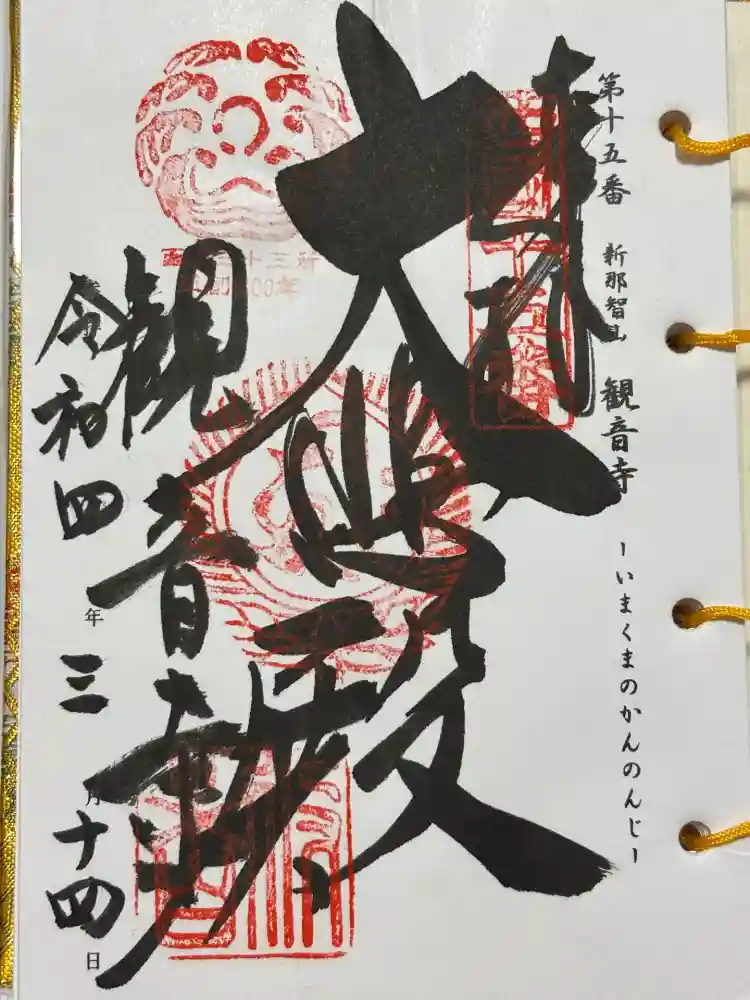 第十五番 新那智山 観音寺
ーいまくまのかんのんじー
奉拝
大悲殿
観音寺
西国三十三所
草創1300年
令和四年三月十四日